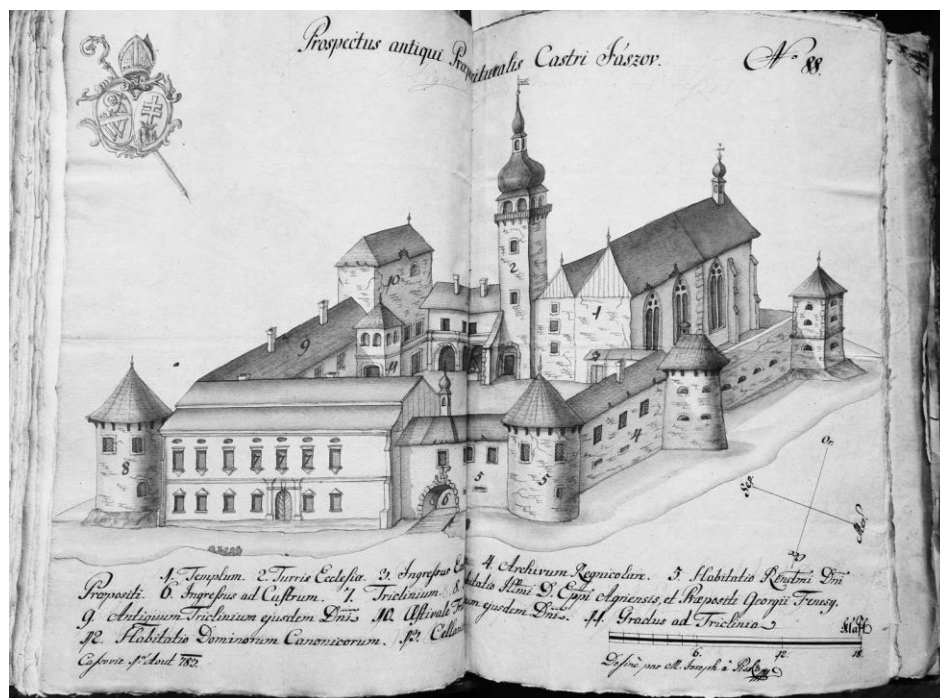 Prospectus antiqui Præpituralis Castri Jászov.
Nº 88.
10
2
1
9
11
3
4
8
5
5
6
Or.
Sep.
Mer.
Oc.
1. Templum. 2. Turris Ecclesiæ. 3. Ingressus 4. Archivum Regnicolare. 5. Habitatio Rendmi Dni
Præpositi. 6. Ingressus ad Castrum. 7. Triclinium. 8. Habitatio Illmi D. Eppi Agriensis, et Præpositi Georgii
9. Antiquum Triclinium ejusdem Dnis. 10. Æstivale ejusdem Dnis. 11. Gradus ad Triclinia
12. Habitatio Dominorum Canonicorum. 13.
Klaft
6. 12. 18.
Cassoviæ Aout 78
Desiné par M. Joseph à